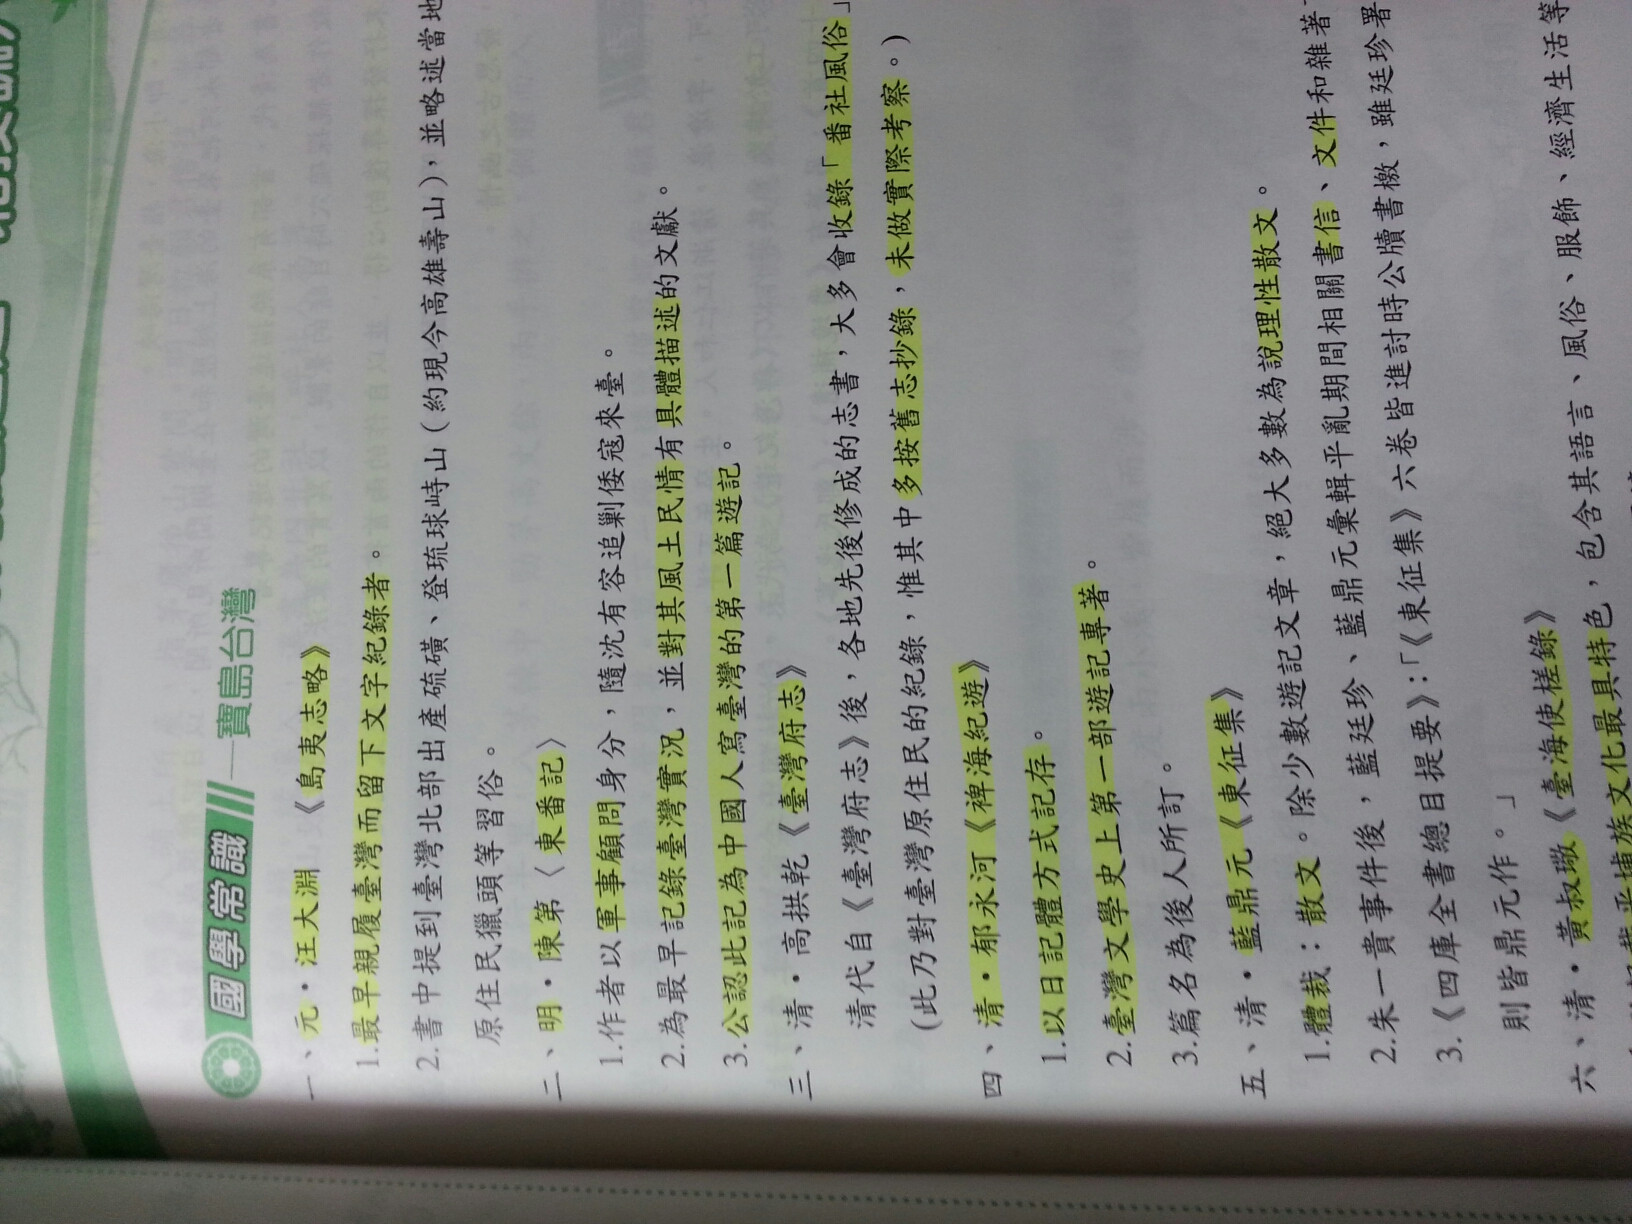 國學常識 ——寶島台灣
一、元·汪大淵 《島夷志略》
1.最早親履臺灣而留下文字紀錄者。
2.書中提到臺灣北部出產硫磺、登琉球峙山(約現今高雄壽山)，並略述當地
原住民獵頭等習俗。
二、明·陳第〈東番記〉
1.作者以軍事顧問身分，隨沈有容追剿倭寇來臺。
2.為最早記錄臺灣實況，並對其風土民情有具體描述的文獻。
3.公認此記為中國人寫臺灣的第一篇遊記。
三、清·高拱乾《臺灣府志》
清代自《臺灣府志》後，各地先後修成的志書，大多會收錄「番社風俗」
(此乃對臺灣原住民的紀錄，惟其中多按舊志抄錄，未做實際考察。)
四、清·郁永河《裨海紀遊》
1.以日記體方式記存。
2.臺灣文學史上第一部遊記專著。
3.篇名為後人所訂。
五、清·藍鼎元《東征集》
1.體裁：散文。除少數遊記文章，絕大多數為說理性散文。
2.朱一貴事件後，藍廷珍、藍鼎元彙輯平亂期間相關書信、文件和雜著
3.《四庫全書總目提要》：「《東征集》六卷皆進討時公牘書檄，雖廷珍署
則皆鼎元作。」
六、清·黃叔璥《臺海使槎錄》
族文化最具特色，包含其語言、風俗、服飾、經濟生活等